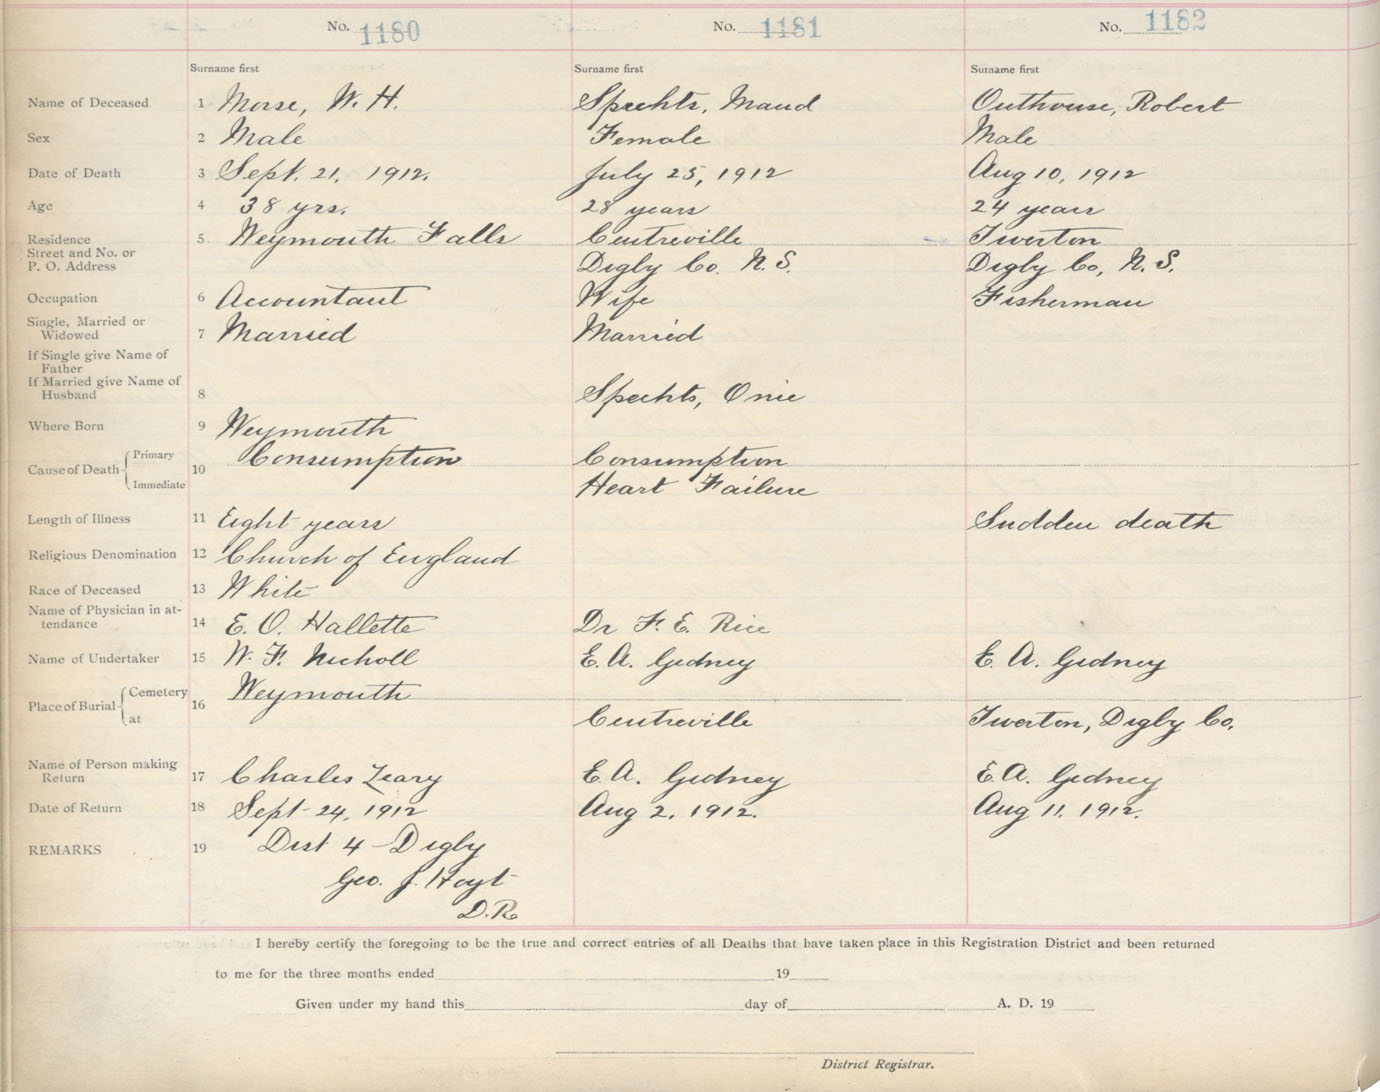 No. 1180 No. 1181 No. 1182
Surname first Surname first Surname first
Name of Deceased 1 Morse, W. H. Spechts, Maud Outhouse, Robert
Sex 2 Male Female Male
Date of Death 3 Sept. 21, 1912. July 25, 1912 Aug 10, 1912
Age 4 38 yrs. 28 years 24 years
Residence 5 Weymouth Falls Centreville Tiverton
Street and No. or
P. O. Address Digby Co. N.S. Digby Co, N.S.
Occupation 6 Accountant Wife Fisherman
Single, Married or
Widowed 7 Married Married
If Single give Name of
Father
If Married give Name of
Husband 8 Spechts, Onie
Where Born 9 Weymouth
Cause of Death Primary 10 Consumption Consumption
Immediate Heart Failure
Length of Illness 11 Eight years Sudden death
Religious Denomination 12 Church of England
Race of Deceased 13 White
Name of Physician in at-
tendance 14 E. O. Hallette Dr F. E. Rice
Name of Undertaker 15 W. F. Nicholl E. A. Gidney E. A. Gidney
Place of Burial Cemetery 16 Weymouth
at Centreville Tiverton, Digby Co.
Name of Person making
Return 17 Charles Zeary E. A. Gidney E. A. Gidney
Date of Return 18 Sept 24, 1912 Aug 2, 1912. Aug 11, 1912.
REMARKS 19 Dist 4 Digby
Geo. J. Hoyt
D.R.
I hereby certify the foregoing to be the true and correct entries of all Deaths that have taken place in this Registration District and been returned
to me for the three months ended 19
Given under my hand this day of A. D. 19
District Registrar.